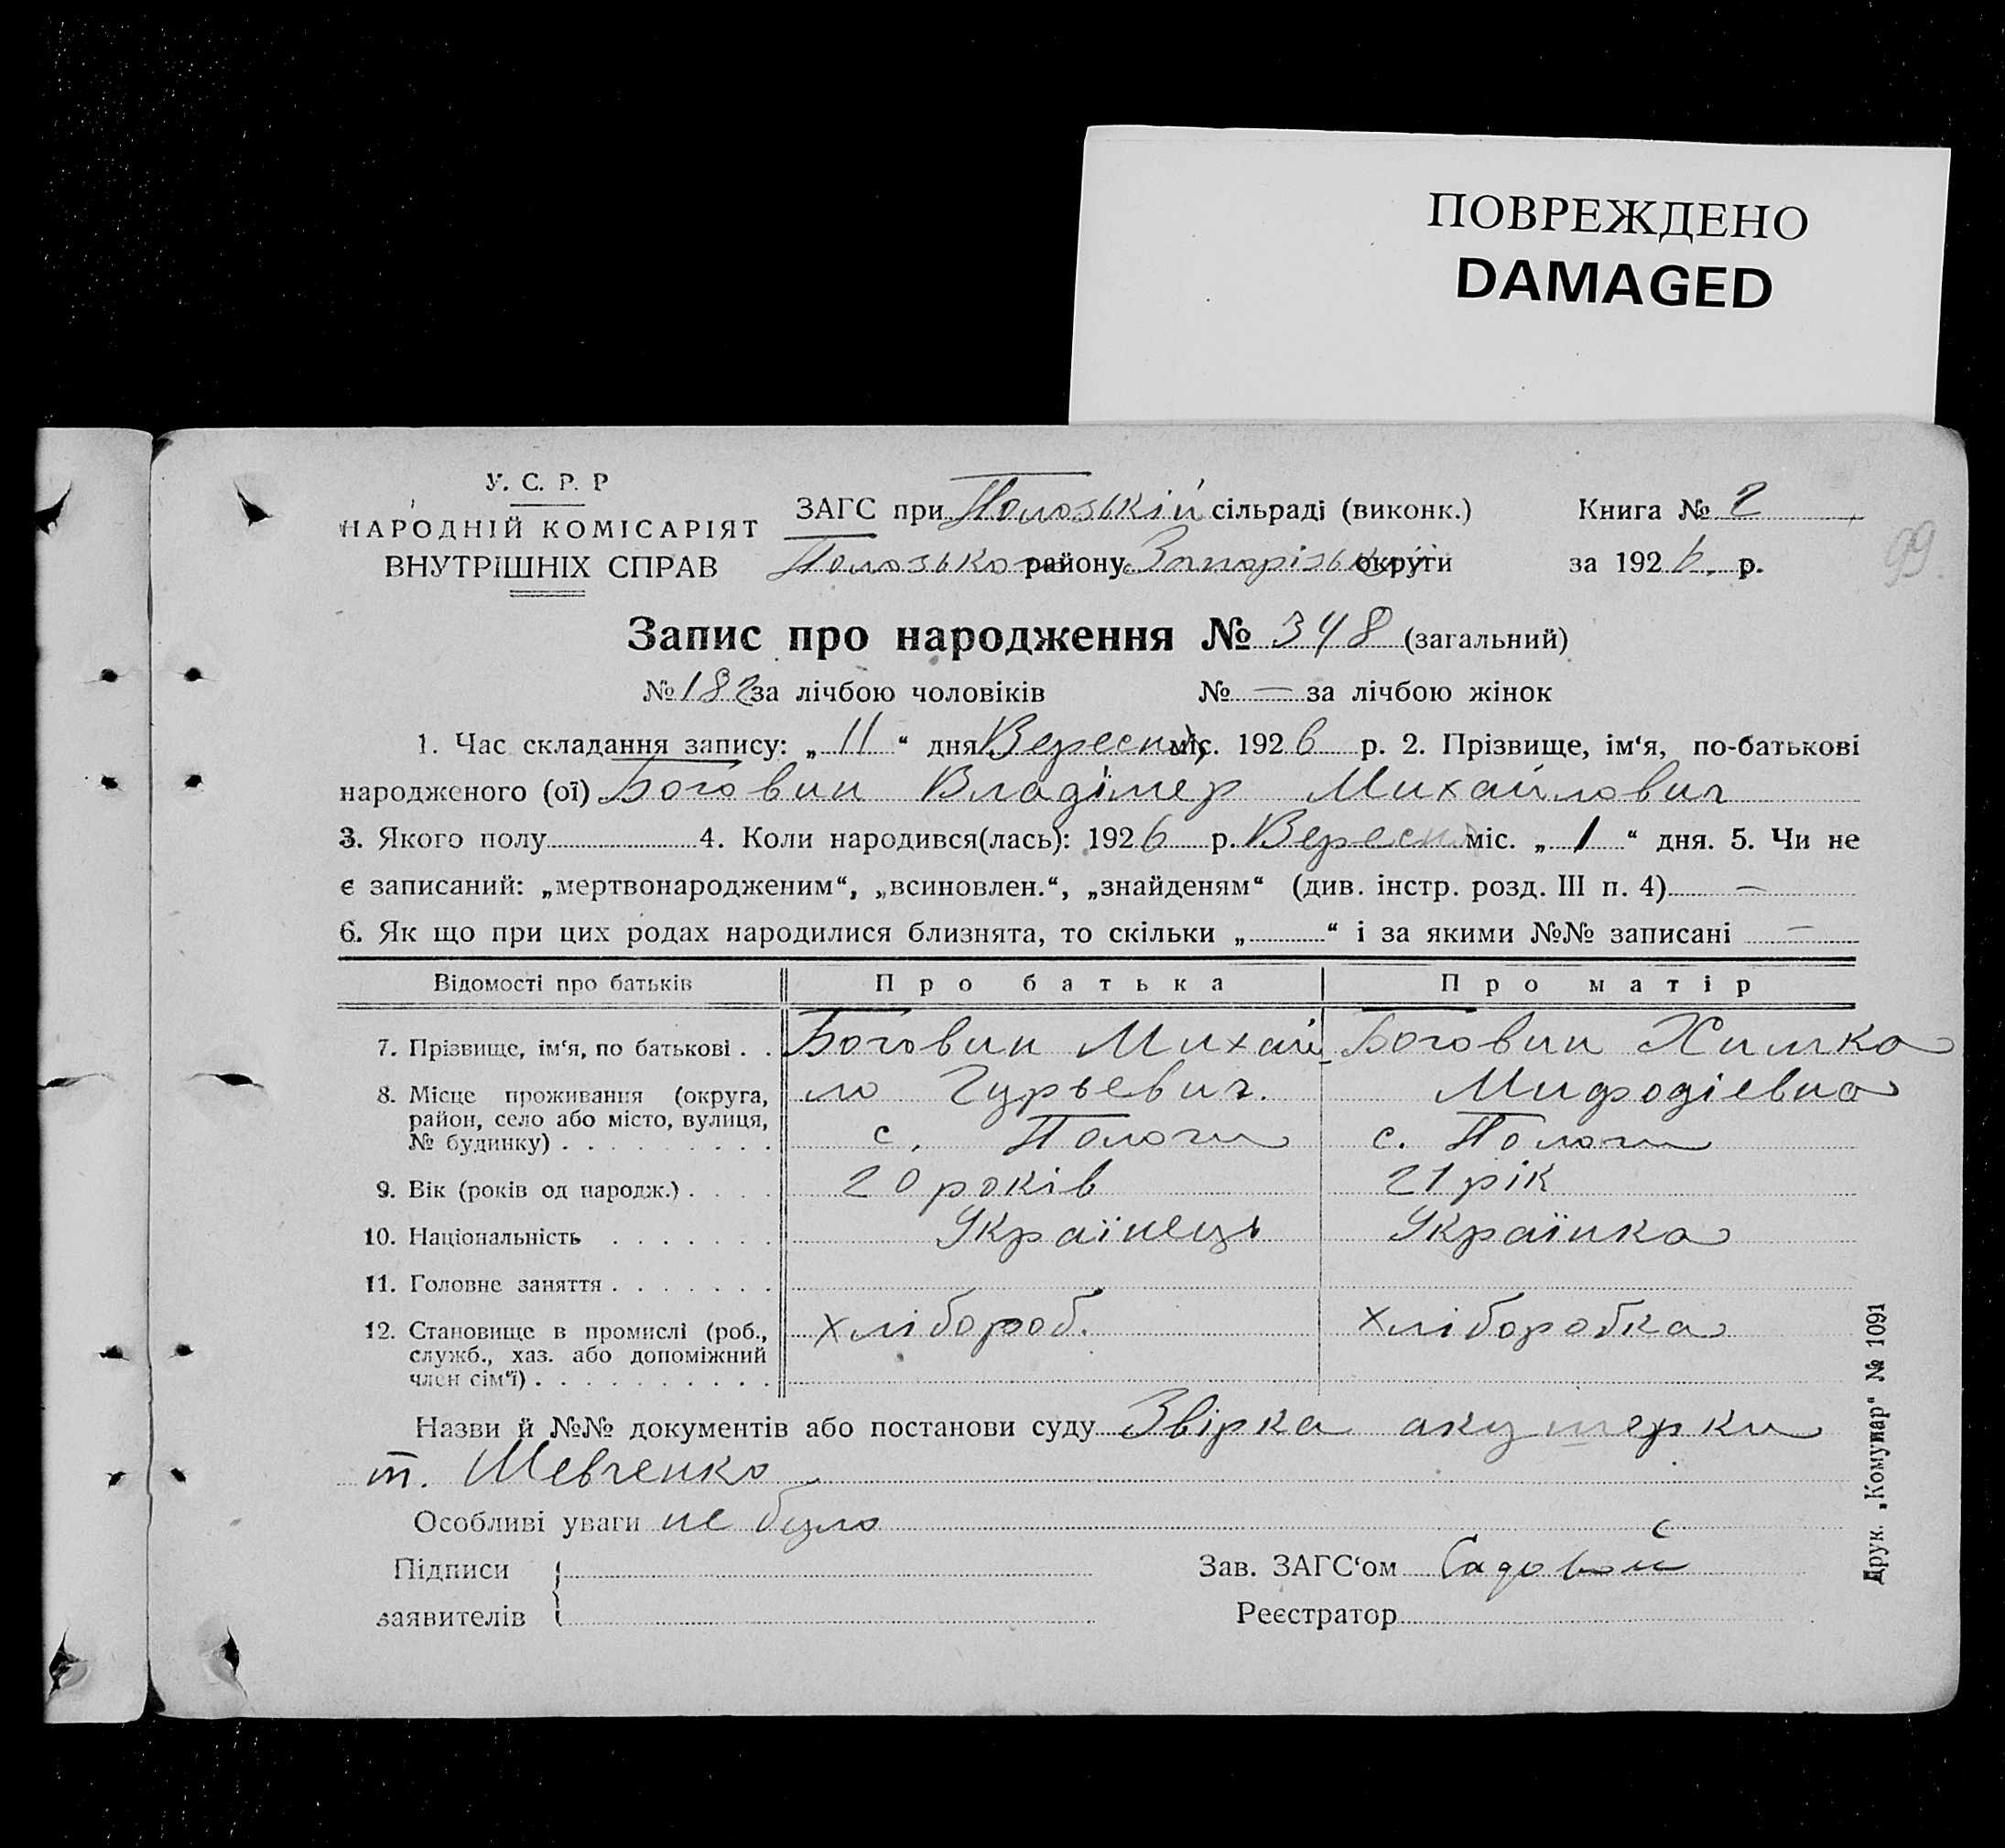 ПОВРЕЖДЕНО
DAMAGED
У. С. Р. Р
НАРОДНІЙ КОМІСАРІЯТ
ВНУТРІШНІХ СПРАВ
ЗАГС при Положській сільраді (виконк.)
Пологського району Запорізької округи
Книга № 2
за 1926 р.
99
Запис про народження № 348 (загальний)
№ 182 за лічбою чоловіків № — за лічбою жінок
1. Час складання запису: „ 11 “ дня Вересня міс. 1926 р. 2. Прізвище, ім‘я, по-батькові
народженого (ої) Боговин Владімер Михайлович
3. Якого полу 4. Коли народився(лась): 1926 р. Вересня міс. „ 1 “ дня. 5. Чи не
є записаний: „мертвонародженим“, „всиновлен.“, „знайденям“ (див. інстр. розд. III п. 4) —
6. Як що при цих родах народилися близнята, то скільки „ “ і за якими №№ записані —
Відомості про батьків Про батька Про матір
7. Прізвище, ім‘я, по батькові . . Боговин Михай Боговин Химка
8. Місце проживання (округа, ло Гурьевич. Мифодіевна
район, село або місто, вулиця,
№ будинку) . . . . . . . . . с. Пологи с. Пологи
9. Вік (років од народж.) . . . . 20 років 21 рік
10. Національність . . . . . . . Українець Українка
11. Головне заняття . . . . . . .
12. Становище в промислі (роб., хлібороб. хліборобка
служб., хаз. або допоміжний
член сім‘ї) . . . . . . . . . .
Назви й №№ документів або постанови суду Звірка акушерки
т. Шевченко
Особливі уваги не було
Підписи Зав. ЗАГС‘ом Садовой
заявителів Реєстратор
Друк. „Комунар“ № 1091